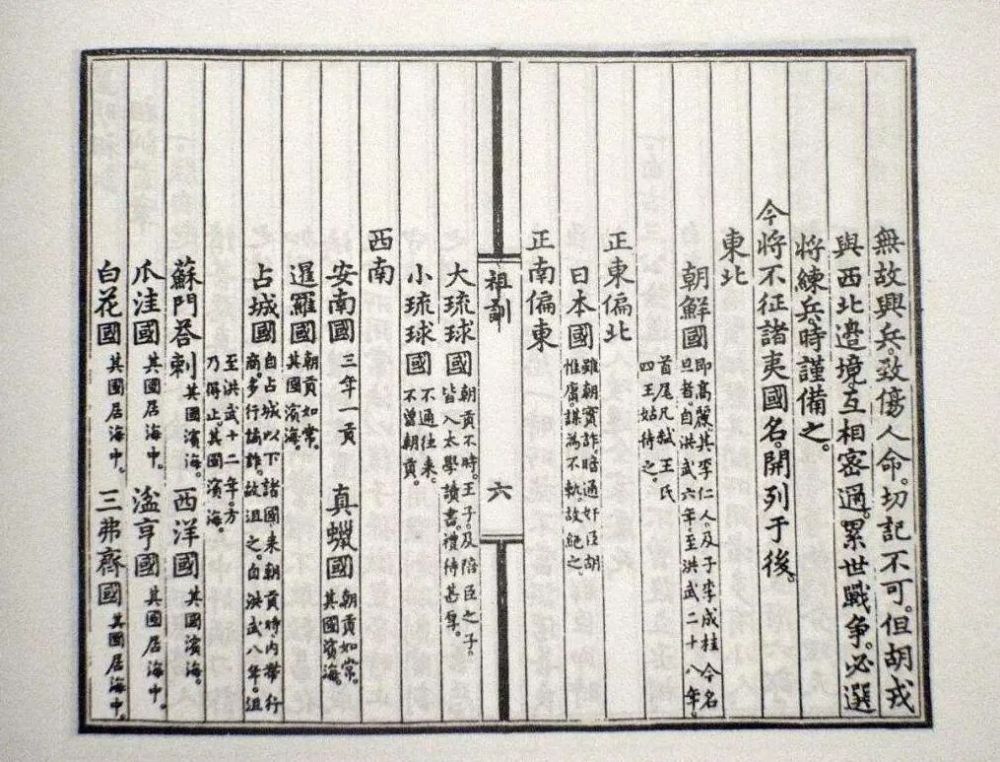 無故興兵。致傷人命。切記不可。但胡戎
與西北邉境。互相密邇。累世戰争。必選
將練兵時謹備之。
今將不征諸夷國名。開列于後。
東北
朝鮮國
即高麗。其李仁人。及子李成桂 今名
旦者。自洪武六年。至洪武二十八年。
首尾凡弑王氏
四王姑待之。
正東偏北
日本國
雖朝實詐。暗通奸臣胡
惟庸。謀為不軌。故絶之。
正南偏東
祖訓 六
大琉球國
朝貢不時。王子。及陪臣之子。
皆入太學讀書。禮待甚厚。
小琉球國
不通徃来。
不曾朝貢。
西南
安南國 三年一貢 真蠟國
朝貢如常。
其國濱海。
暹羅國
朝貢如常。
其國濱海。
占城國
自占城以下諸國。来朝貢時。内帶行
商。多行譎詐。故沮之。自洪武八年。沮
至洪武十二年。方
乃得止。其國濱海。
蘇門荅剌 其國濱海。 西洋國 其國濱海。
爪洼國 其國居海中。 湓亨國 其國居海中。
白花國 其國居海中。 三弗齊國 其國居海中。